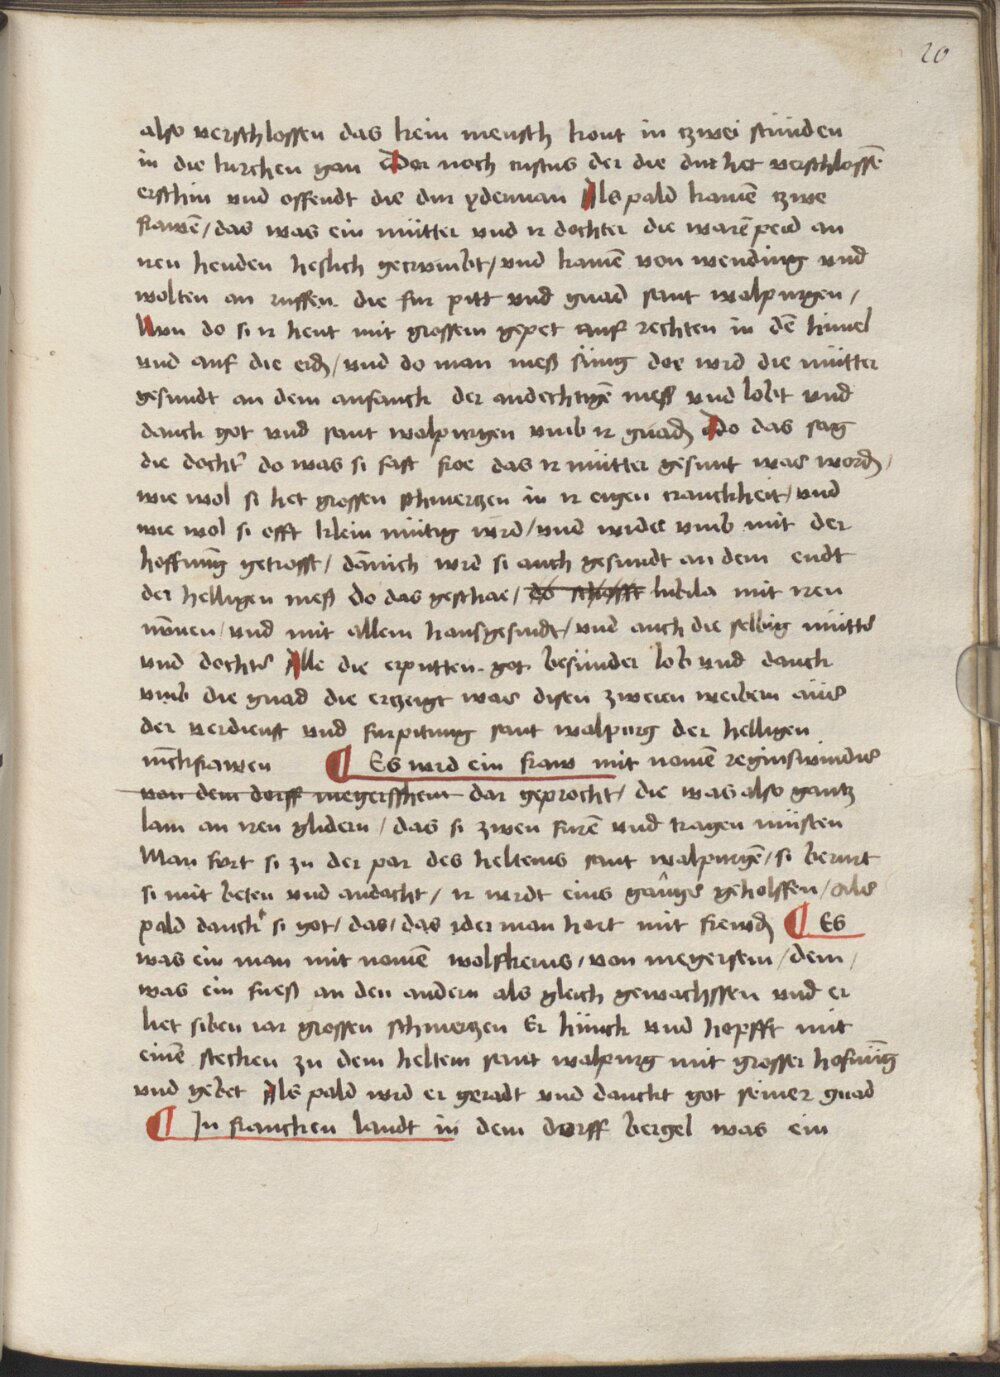 20
also verschlossen das kein mensch kont in tzwei stunden
in die kirchen gan Dor noch cristus der die dur het verschlossē
erschin und offendt die dur yderman Als pald kamē tzwe
frawē / das was ein mütter und ir dochter die warē peid an
iren henden heslich gecrumbt / und kamē von wending und
wolten an ruffen die fur pitt und gnad sant walpurgen /
Nun do si ir hent mit grossem gepet auf rechten in dē himel
und auf die erd / und do man meß süng doe wrd die mütter
gesundt an dem anfanck der andechtigē meß und lobt und
danck got und sant walpurgen umb ir gnad Do das sag
die dochter do was si fast froe das ir mütter gesunt was word /
wie wol si het grossen schmertzen in ir eigen cranckheit / und
wie wol si offt klein mütig wrd / und wider umb mit der
hoffnūg getrosst / dānich wrd si auch gesundt an dem endt
der helligen meß Do das geschae / lubila mit iren
nūnen / und mit allem hausgesindt / und auch die selbig mütter
und dochter Alle die erputten got besünder lob und danck
umb die gnad die ertzeigt was disen zweien weibern aus
der verdienst und furpitung sant walpurg der helligen
iūckfrawen ¶ Es wrd ein fraw mit namē reginswindis
von dem dorff megersshem dar geprocht / die was also gantz
lam an iren glidern / das si zwen furē und tragen müsten
Man furt si zu der par des heltems sant walpurgē / si berurt
si mit beten und andacht / ir wrdt eins gangs geholffen / Als
pald danckt si got / das / das iderman hort mit frewd ¶ Es
was ein man mit namē wolfkerus / von megersem / dem /
was ein fueß an den andern als gleich gewachssen und er
het siben iar grossen schmertzen Er hünck und hopfft mit
einē stecken zu dem heltem sant walpurg mit grosser hofnūg
und gebet Als pald wrd er geradt und danckt got seiner gnad
¶ In francken landt in dem dorff bergel was ein